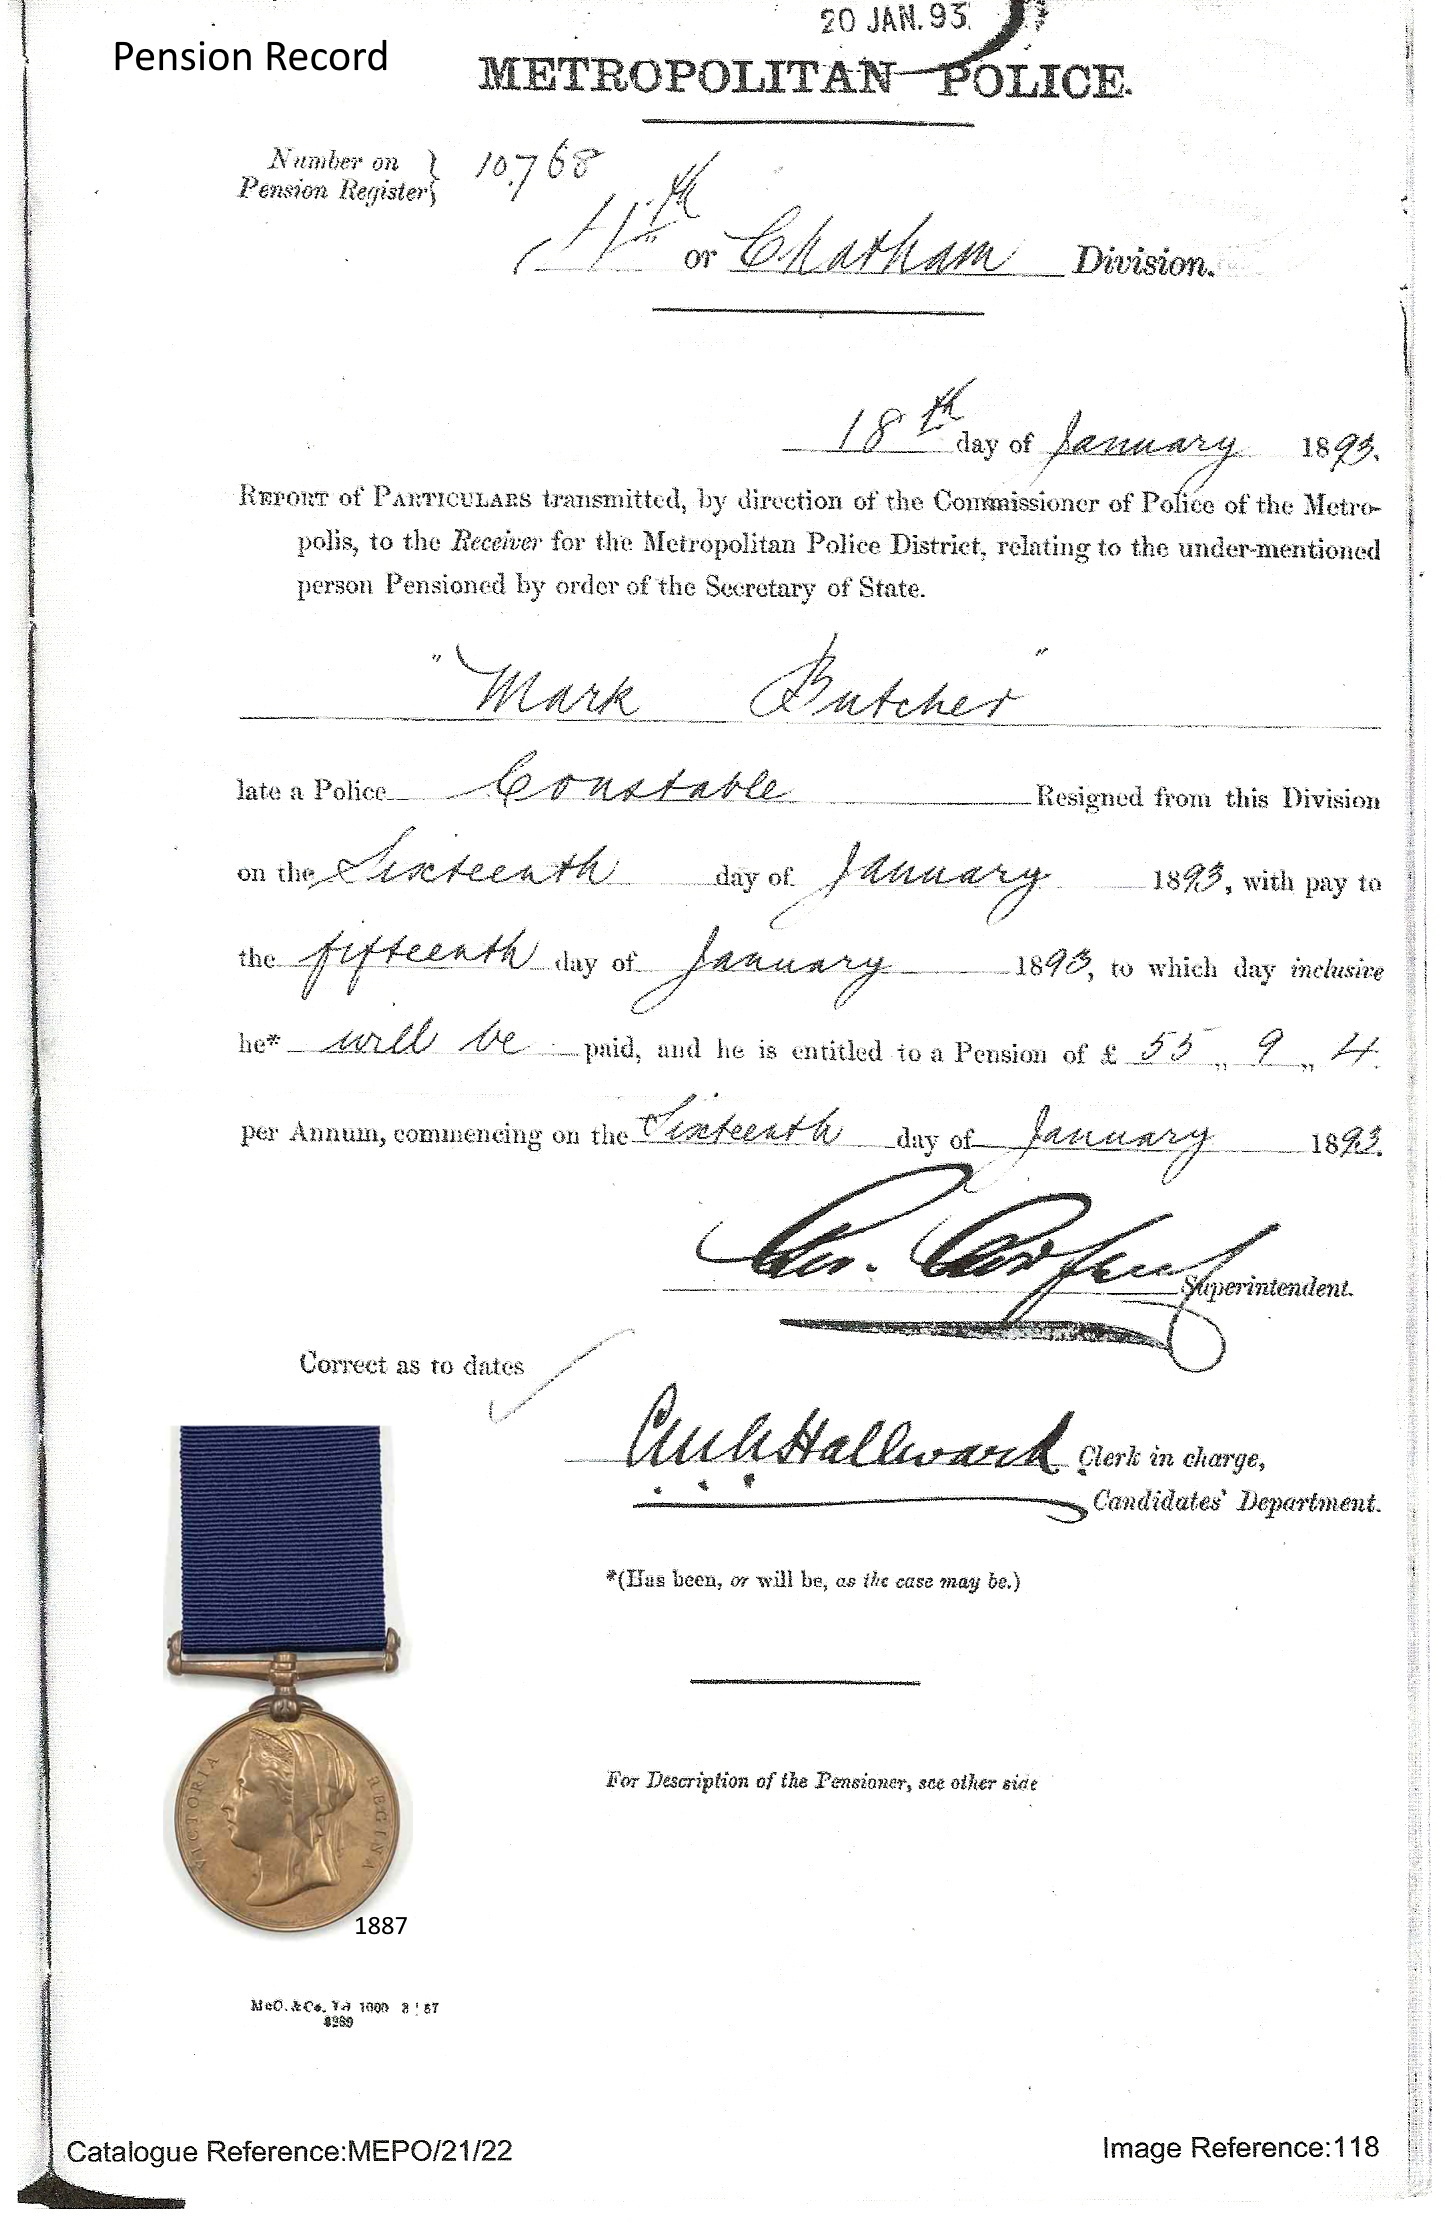 20 JAN. 93
Pension Record
METROPOLITAN POLICE.
Number on Pension Register } 10,768
4th or Chatham Division.
18th day of January 1893.
REPORT of PARTICULARS transmitted, by direction of the Commissioner of Police of the Metro-
polis, to the Receiver for the Metropolitan Police District, relating to the under-mentioned
person Pensioned by order of the Secretary of State.
"Mark Butcher"
late a Police Constable Resigned from this Division
on the Sixteenth day of January 1893, with pay to
the fifteenth day of January 1893, to which day inclusive
he* will be paid, and he is entitled to a Pension of £ 55 „ 9 „ 4
per Annum, commencing on the Sixteenth day of January 1893.
Superintendent.
Correct as to dates
Hallward Clerk in charge,
Candidates' Department.
*(Has been, or will be, as the case may be.)
For Description of the Pensioner, see other side
VICTORIA REGINA
1887
McC. & Co. 1000
Catalogue Reference:MEPO/21/22
Image Reference:118